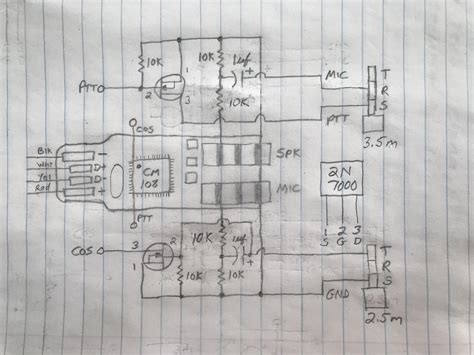 10K
10K
1uf
+
1
2
3
PTT
MIC
T
R
S
10K
PTT
3.5m
COS
Blk
Wht
Yel
Red
-
D+
D-
+
CM
108
SPK
MIC
2N
7000
1 2 3
S G D
PTT
COS
3
2
1
10K
1uf
+
10K
10K
T
R
S
GND
2.5m